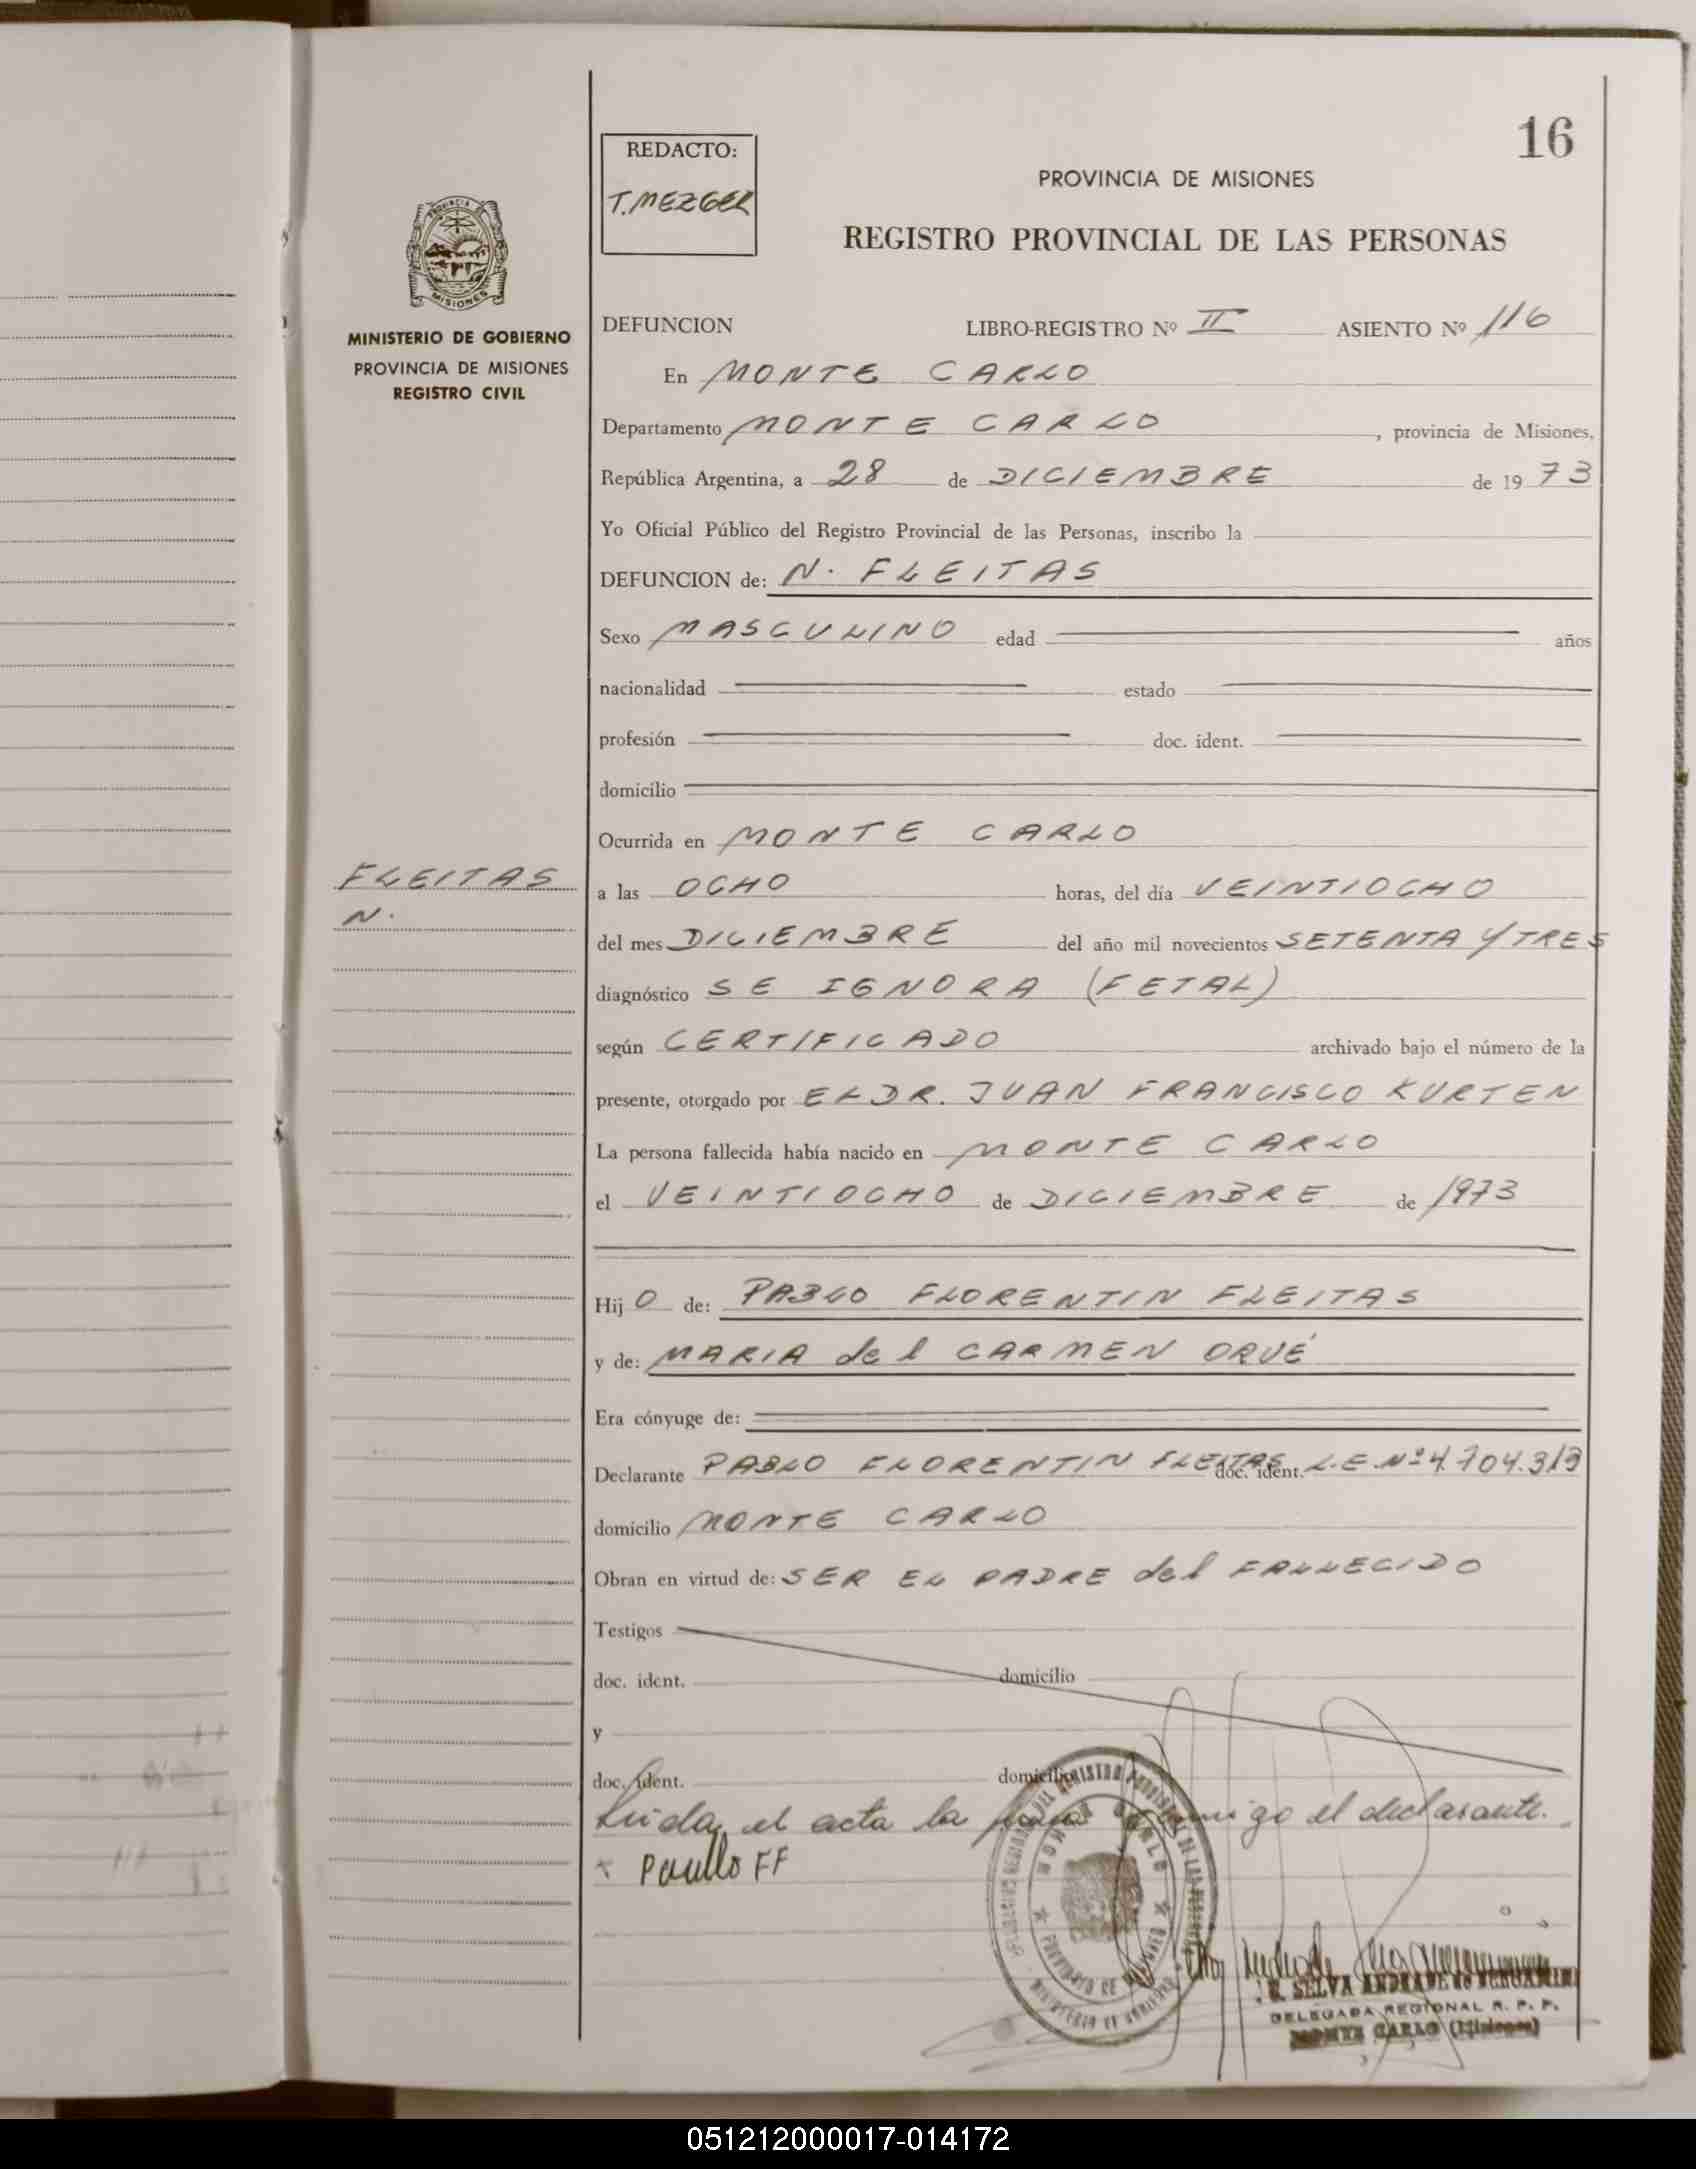 16
REDACTO:
T. MEZGER
PROVINCIA DE MISIONES
REGISTRO PROVINCIAL DE LAS PERSONAS
MINISTERIO DE GOBIERNO
PROVINCIA DE MISIONES
REGISTRO CIVIL
DEFUNCION LIBRO-REGISTRO Nº II ASIENTO Nº 116
En MONTE CARLO
Departamento MONTE CARLO, provincia de Misiones,
República Argentina, a 28 de DICIEMBRE de 1973
Yo Oficial Público del Registro Provincial de las Personas, inscribo la
DEFUNCION de: N. FLEITAS
Sexo MASCULINO edad años
nacionalidad estado
profesión doc. ident.
domicilio
Ocurrida en MONTE CARLO
FLEITAS
N.
a las OCHO horas, del día VEINTIOCHO
del mes DICIEMBRE del año mil novecientos SETENTA Y TRES
diagnóstico SE IGNORA (FETAL)
según CERTIFICADO archivado bajo el número de la
presente, otorgado por EL DR. JUAN FRANCISCO KURTEN
La persona fallecida había nacido en MONTE CARLO
el VEINTIOCHO de DICIEMBRE de 1973
Hij O de: PABLO FLORENTIN FLEITAS
y de: MARIA del CARMEN ORUÉ
Era cónyuge de:
Declarante PABLO FLORENTIN FLEITAS doc. ident. L.E. Nº 4.704.313
domicilio MONTE CARLO
Obran en virtud de: SER EL PADRE del FALLECIDO
Testigos
doc. ident. domicilio
y
doc. ident. domicilio
Leida el acta la firma conmigo el declarante.
MONTE CARLO
DELEGADA REGIONAL R. P. P.
MONTE CARLO (Misiones)
051212000017-014172